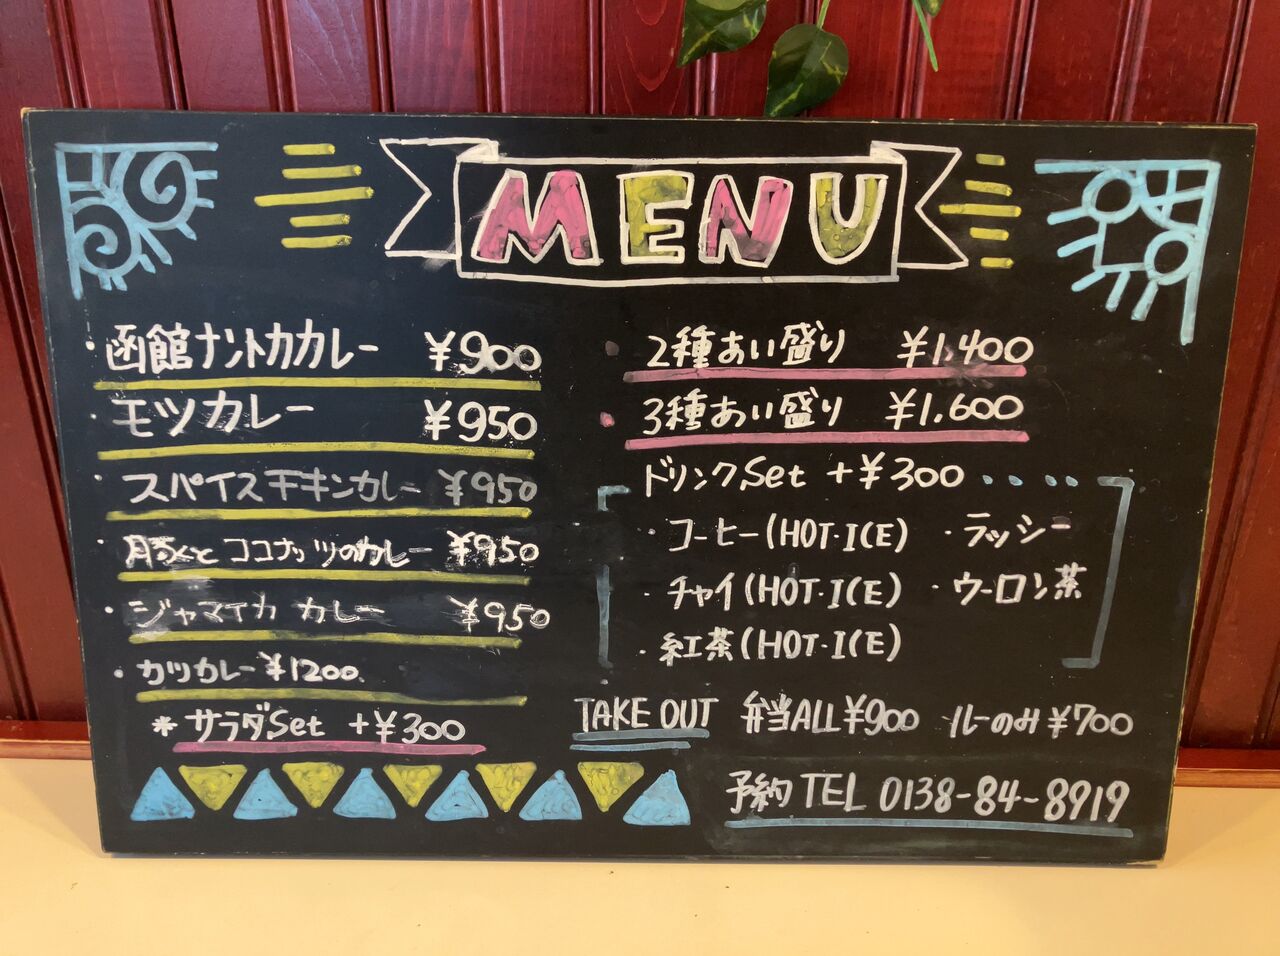 MENU
・函館ナントカカレー ¥900
・モツカレー ¥950
・スパイスチキンカレー ¥950
・豚ろくと ココナッツのカレー ¥950
・ジャマイカ カレー ¥950
・カツカレー ¥1200
*サラダSet +¥300
・2種あい盛り ¥1,400
・3種あい盛り ¥1,600
ドリンクSet +¥300 ・・・・
・コーヒー(HOT・ICE) ・ラッシー
・チャイ(HOT・ICE) ・ウーロン茶
・紅茶(HOT・ICE)
TAKE OUT 弁当ALL¥900 ルーのみ¥700
予約 TEL 0138-84-8919